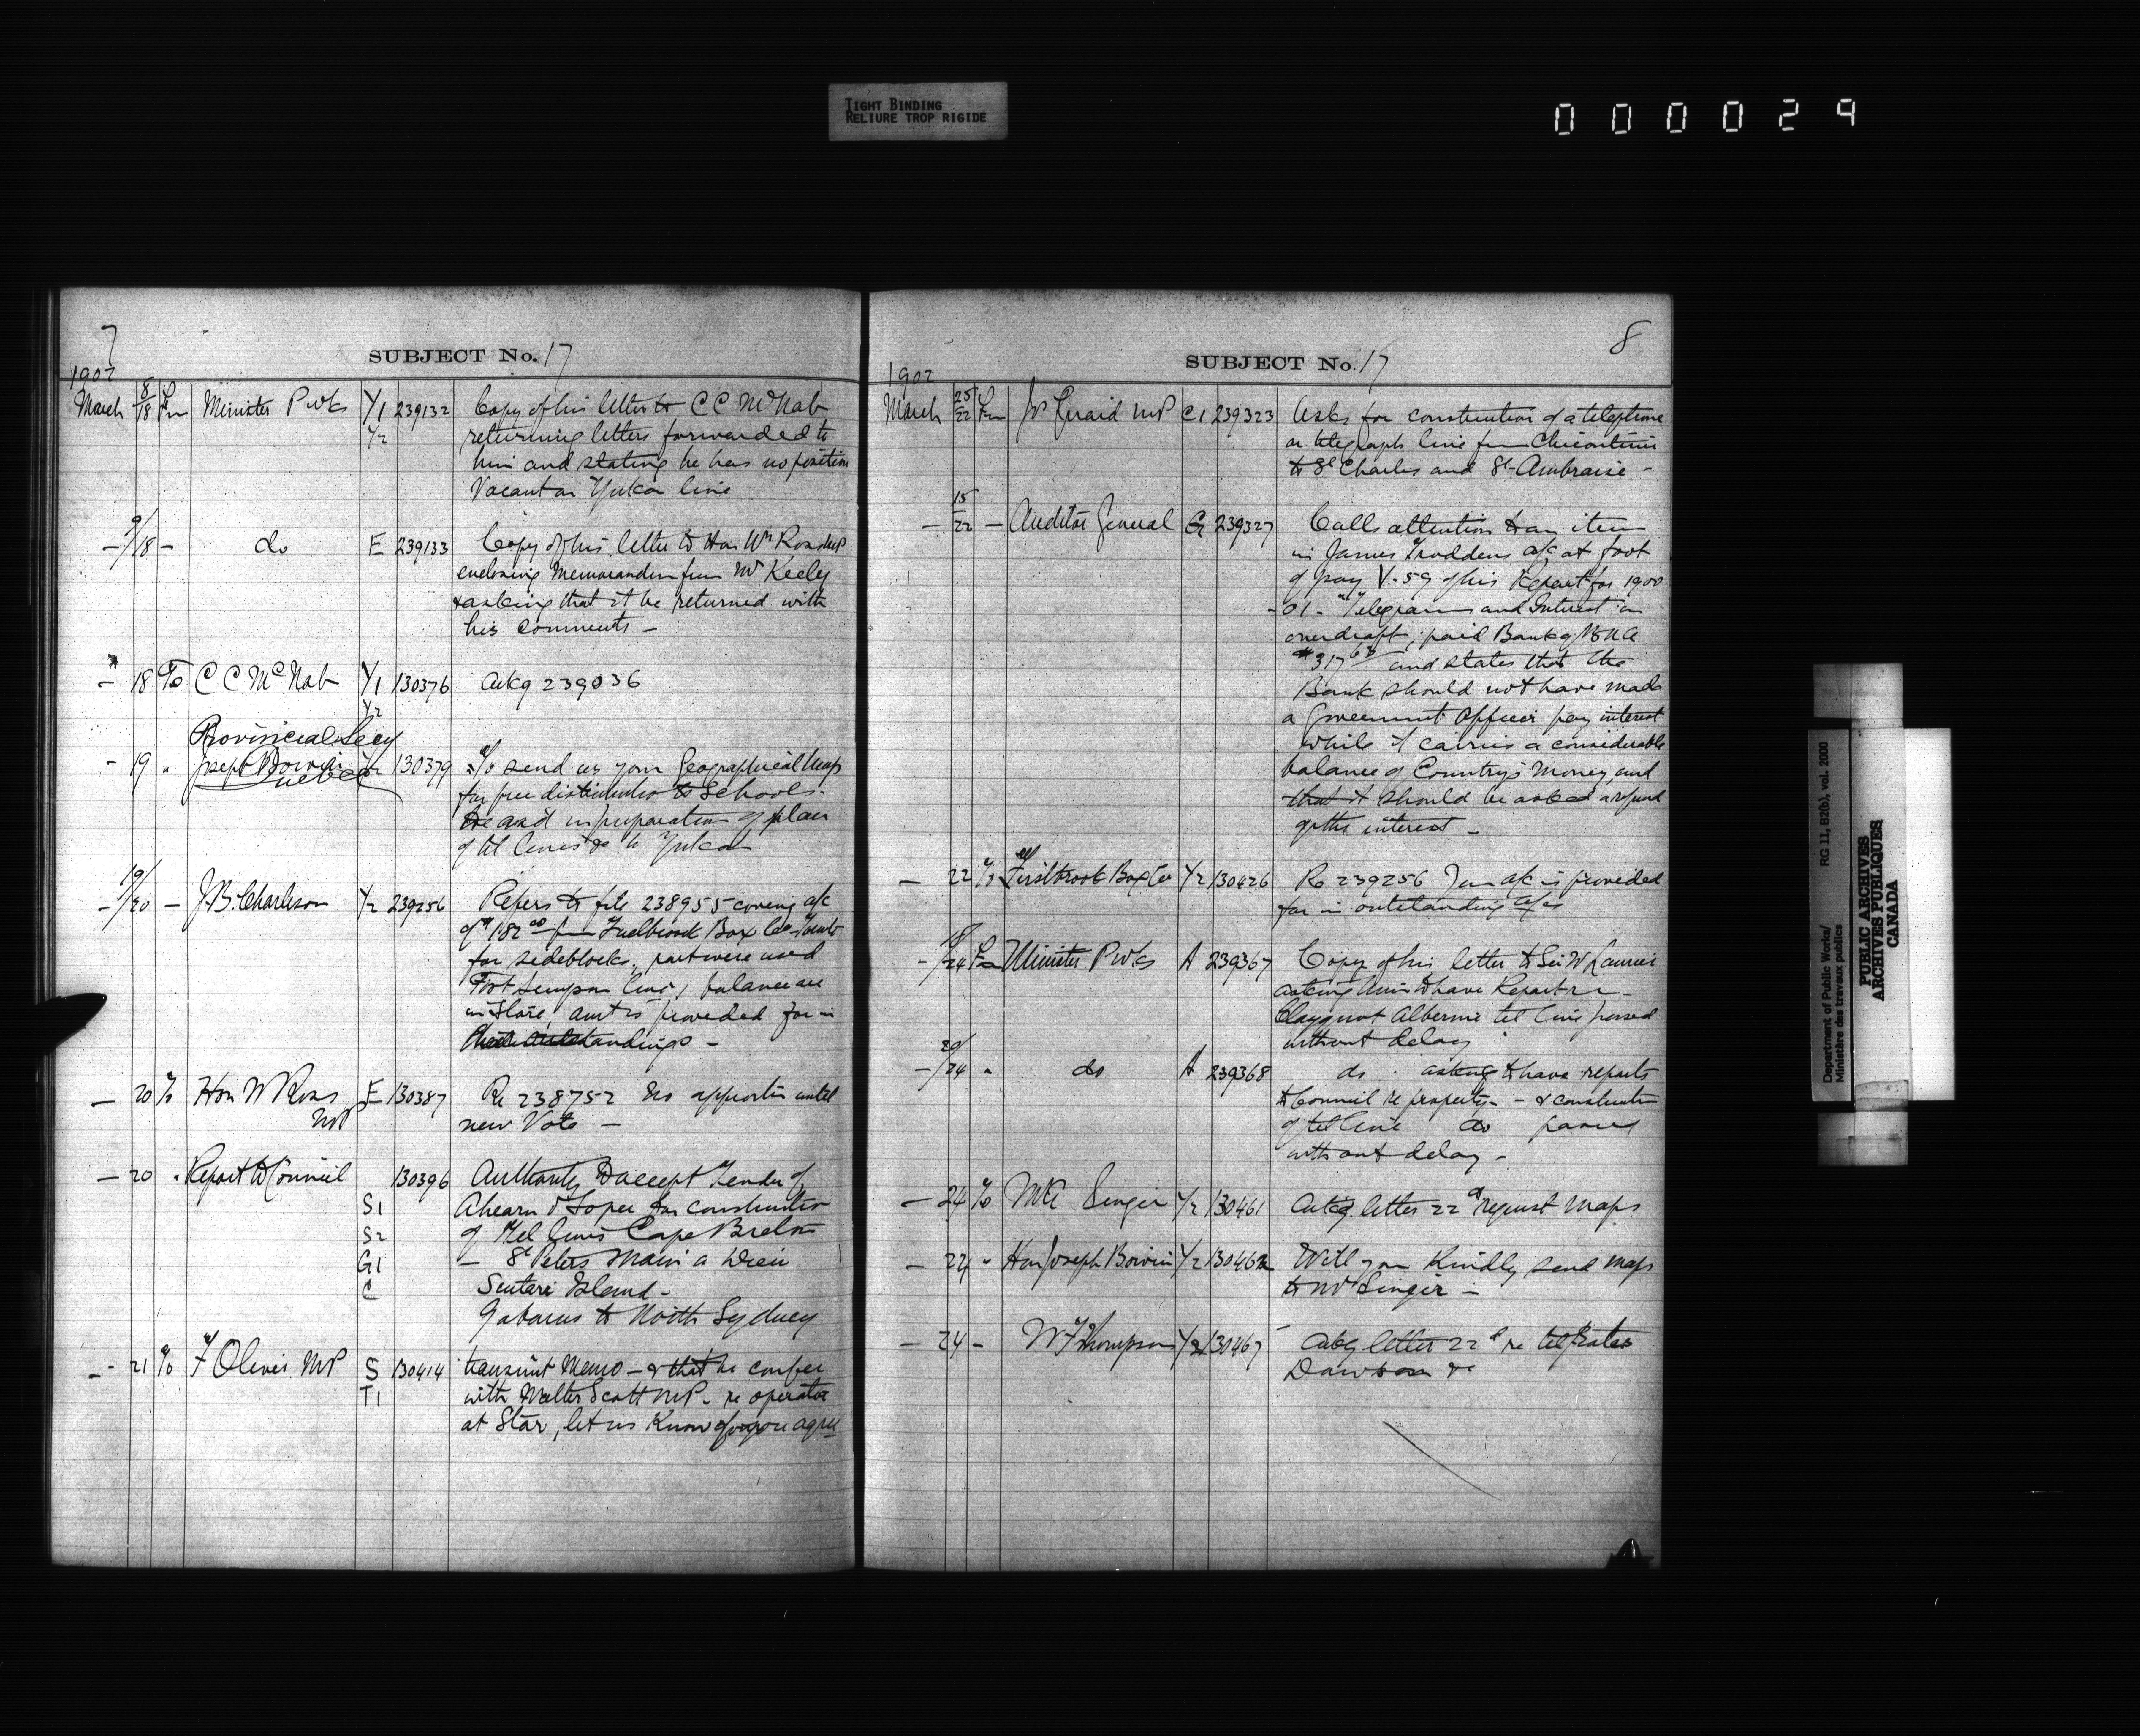 TIGHT BINDING
RELIURE TROP RIGIDE
000029
7
SUBJECT No. 17
1902
March 8/18 Fm Minister P Wks Y1 239132 Copy of his letter to C C McNab
Y2 returning letters forwarded to
him and stating he has no position
Vacant on Yukon line
- 9/18 - do E 239133 Copy of his letter to Hon Wm Ross MP
enclosing Memorandum from Mr Keeley
& asking that it be returned with
his comments -
- 18 To C C McNab Y1 130376 Ackg 239036
Y2
Provincial Secy
- 19 " Joseph Boivin Y2 130379 To send us your Geographical Map
Quebec
for free distribution to Schools.
to aid in preparation of plan
of tel lines &c to Yukon
- 19/20 - J.B. Charleson Y2 239256 Refers to file 238955 covering a/c
of $182.00 from Firstbrook Box Co Toronto
for sideblocks, part were used
Fort Simpson line, balance are
in Store, amt is provided for in
outstandings -
- 20 To Hon W Ross E 130387 Re 238752 no apportn until
MP new Vote -
- 20 " Report to Council 130396 Authority to accept Tender of
S1 Ahearn & Soper for construction
S2 of Tel lines Cape Breton
G1 - St Peters Main a Dieu
C Scatari Island -
Gabarus to North Sydney
- 21 To F Oliver MP S 130414 transmit Memo - & that he confer
T1 with Walter Scott MP - re operator
at Star, let us Know if you agree
8
SUBJECT No. 17
1902
March 25/22 Fm Jos Girard MP C1 239323 Asks for construction of a telephone
or telegraph line from Chicoutimi
to St Charles and St Ambroise -
- 15/22 - Auditor General G 239327 Calls attention to an item
in James a/c at foot
of page V-59 of his Report for 1900
-01 - "Telegrams and Interest on
overdraft; paid Bank of B N A
$317.68 and states that the
Bank should not have made
a Government Officer pay interest
while it carries a considerable
balance of Country's Money, and
that it should be asked a refund
of the interest -
- 22 To Firstbrook Box Co Y2 130426 Re 239256 Your a/c is provided
for in outstanding a/cs
- 18/24 Fm Minister P Wks A 239367 Copy of his letter to Sir W Laurier
asking him to have Report re -
Clayquot Alberni tel line passed
without delay
- 20/24 " do A 239368 do . asking to have reports
to Council re property - & construction
of tel line do passed
without delay -
- 24 To Singer Y2 130461 Ackg. letter 22d request Maps
- 24 " Hon Joseph Boivin Y2 130462 Will you Kindly send maps
to Mr Singer -
- 24 - W F Thompson Y2 130467 Ackg letter 22d re tel Rates
Dawson &c
Department of Public Works/ RG 11, B2(b), vol. 2000
Ministère des travaux publics
PUBLIC ARCHIVES
ARCHIVES PUBLIQUES
CANADA